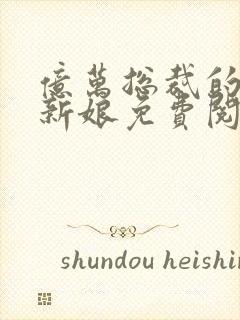 億萬總裁的
新娘免費閱
shundou heishin